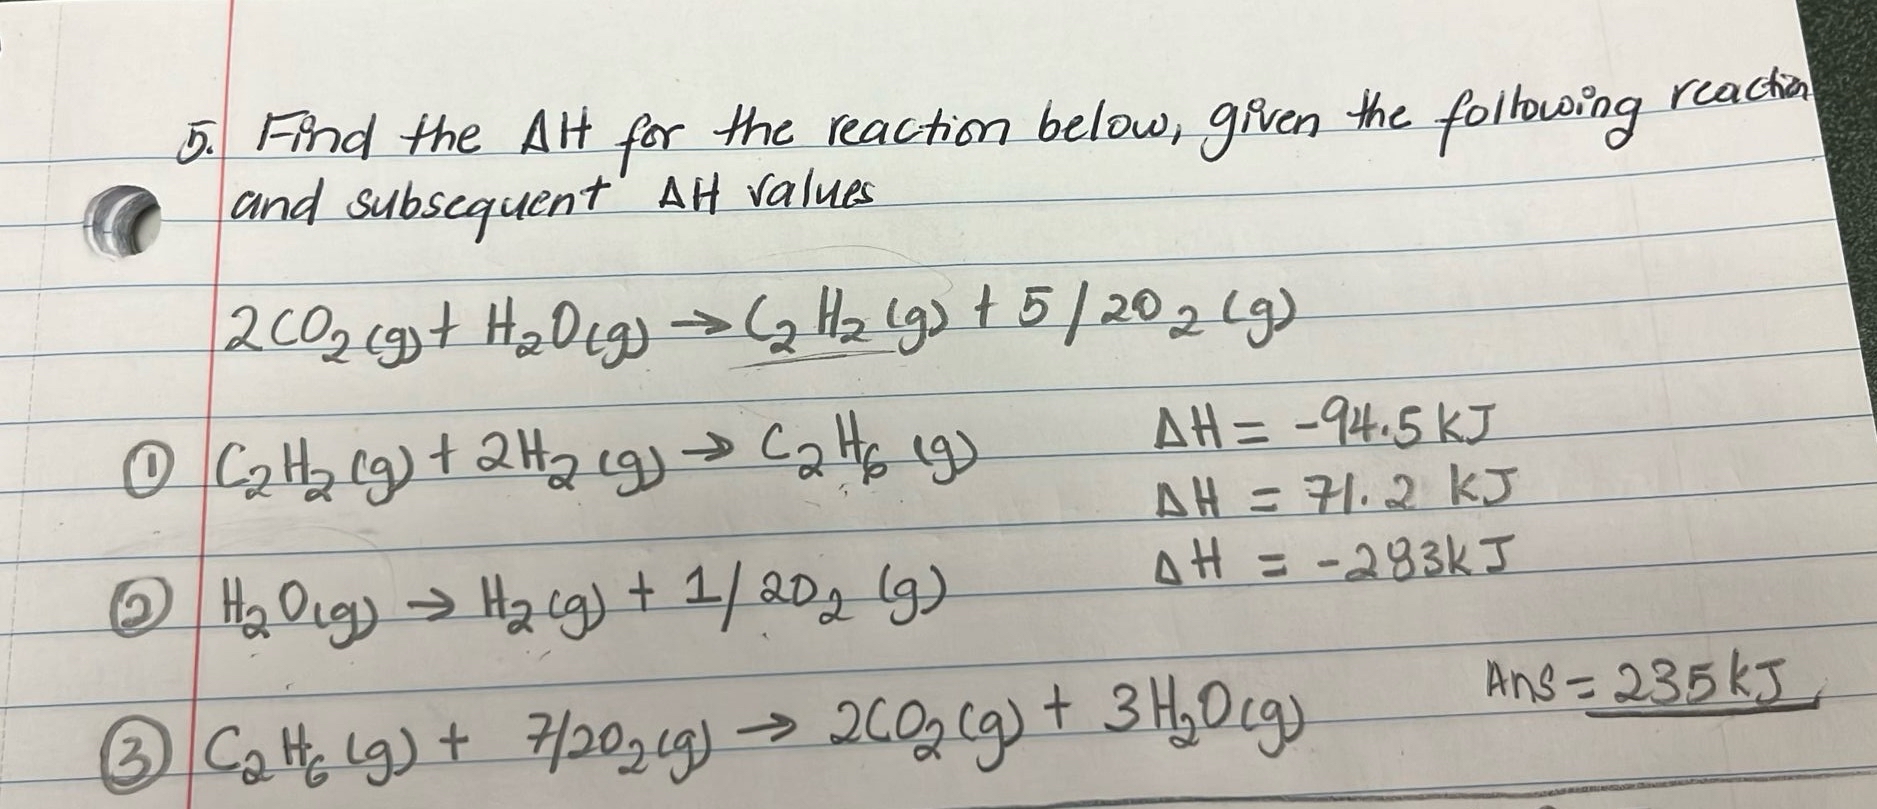 5. Find the ΔH for the reaction below, given the following reaction
and subsequent ΔH values
2CO₂(g) + H₂O(g) → C₂H₂(g) + 5/2O₂(g)
① C₂H₂(g) + 2H₂(g) → C₂H₆(g) ΔH = -94.5 kJ
ΔH = 71.2 kJ
② H₂O(g) → H₂(g) + 1/2O₂(g) ΔH = -283kJ
③ C₂H₆(g) + 7/2O₂(g) → 2CO₂(g) + 3H₂O(g) Ans = 235 kJ